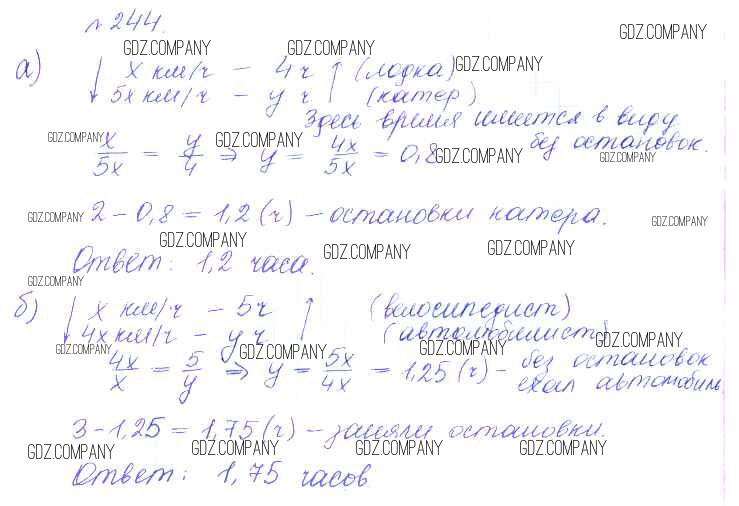 №244.
GDZ.COMPANY
GDZ.COMPANY GDZ.COMPANY
а) ↓ x км/ч – 4ч ↑ (лодка) GDZ.COMPANY
5x км/ч – y ч (катер)
Здесь время имеется в виду без остановок.
GDZ.COMPANY GDZ.COMPANY
x/5x = y/4 ⇒ y = 4x/5x = 0,8 GDZ.COMPANY GDZ.COMPANY
GDZ.COMPANY 2 – 0,8 = 1,2 (ч) – остановки катера. GDZ.COMPANY
GDZ.COMPANY GDZ.COMPANY GDZ.COMPANY
Ответ: 1,2 часа.
GDZ.COMPANY
б) ↓ x км/ч – 5ч ↑ (велосипедист)
4x км/ч – y ч (автомобилист)
GDZ.COMPANY GDZ.COMPANY GDZ.COMPANY GDZ.COMPANY
4x/x = 5/y ⇒ y = 5x/4x = 1,25 (ч) – без остановок ехал автомобиль
3 – 1,25 = 1,75 (ч) – заняли остановки.
GDZ.COMPANY GDZ.COMPANY GDZ.COMPANY GDZ.COMPANY
Ответ: 1,75 часов